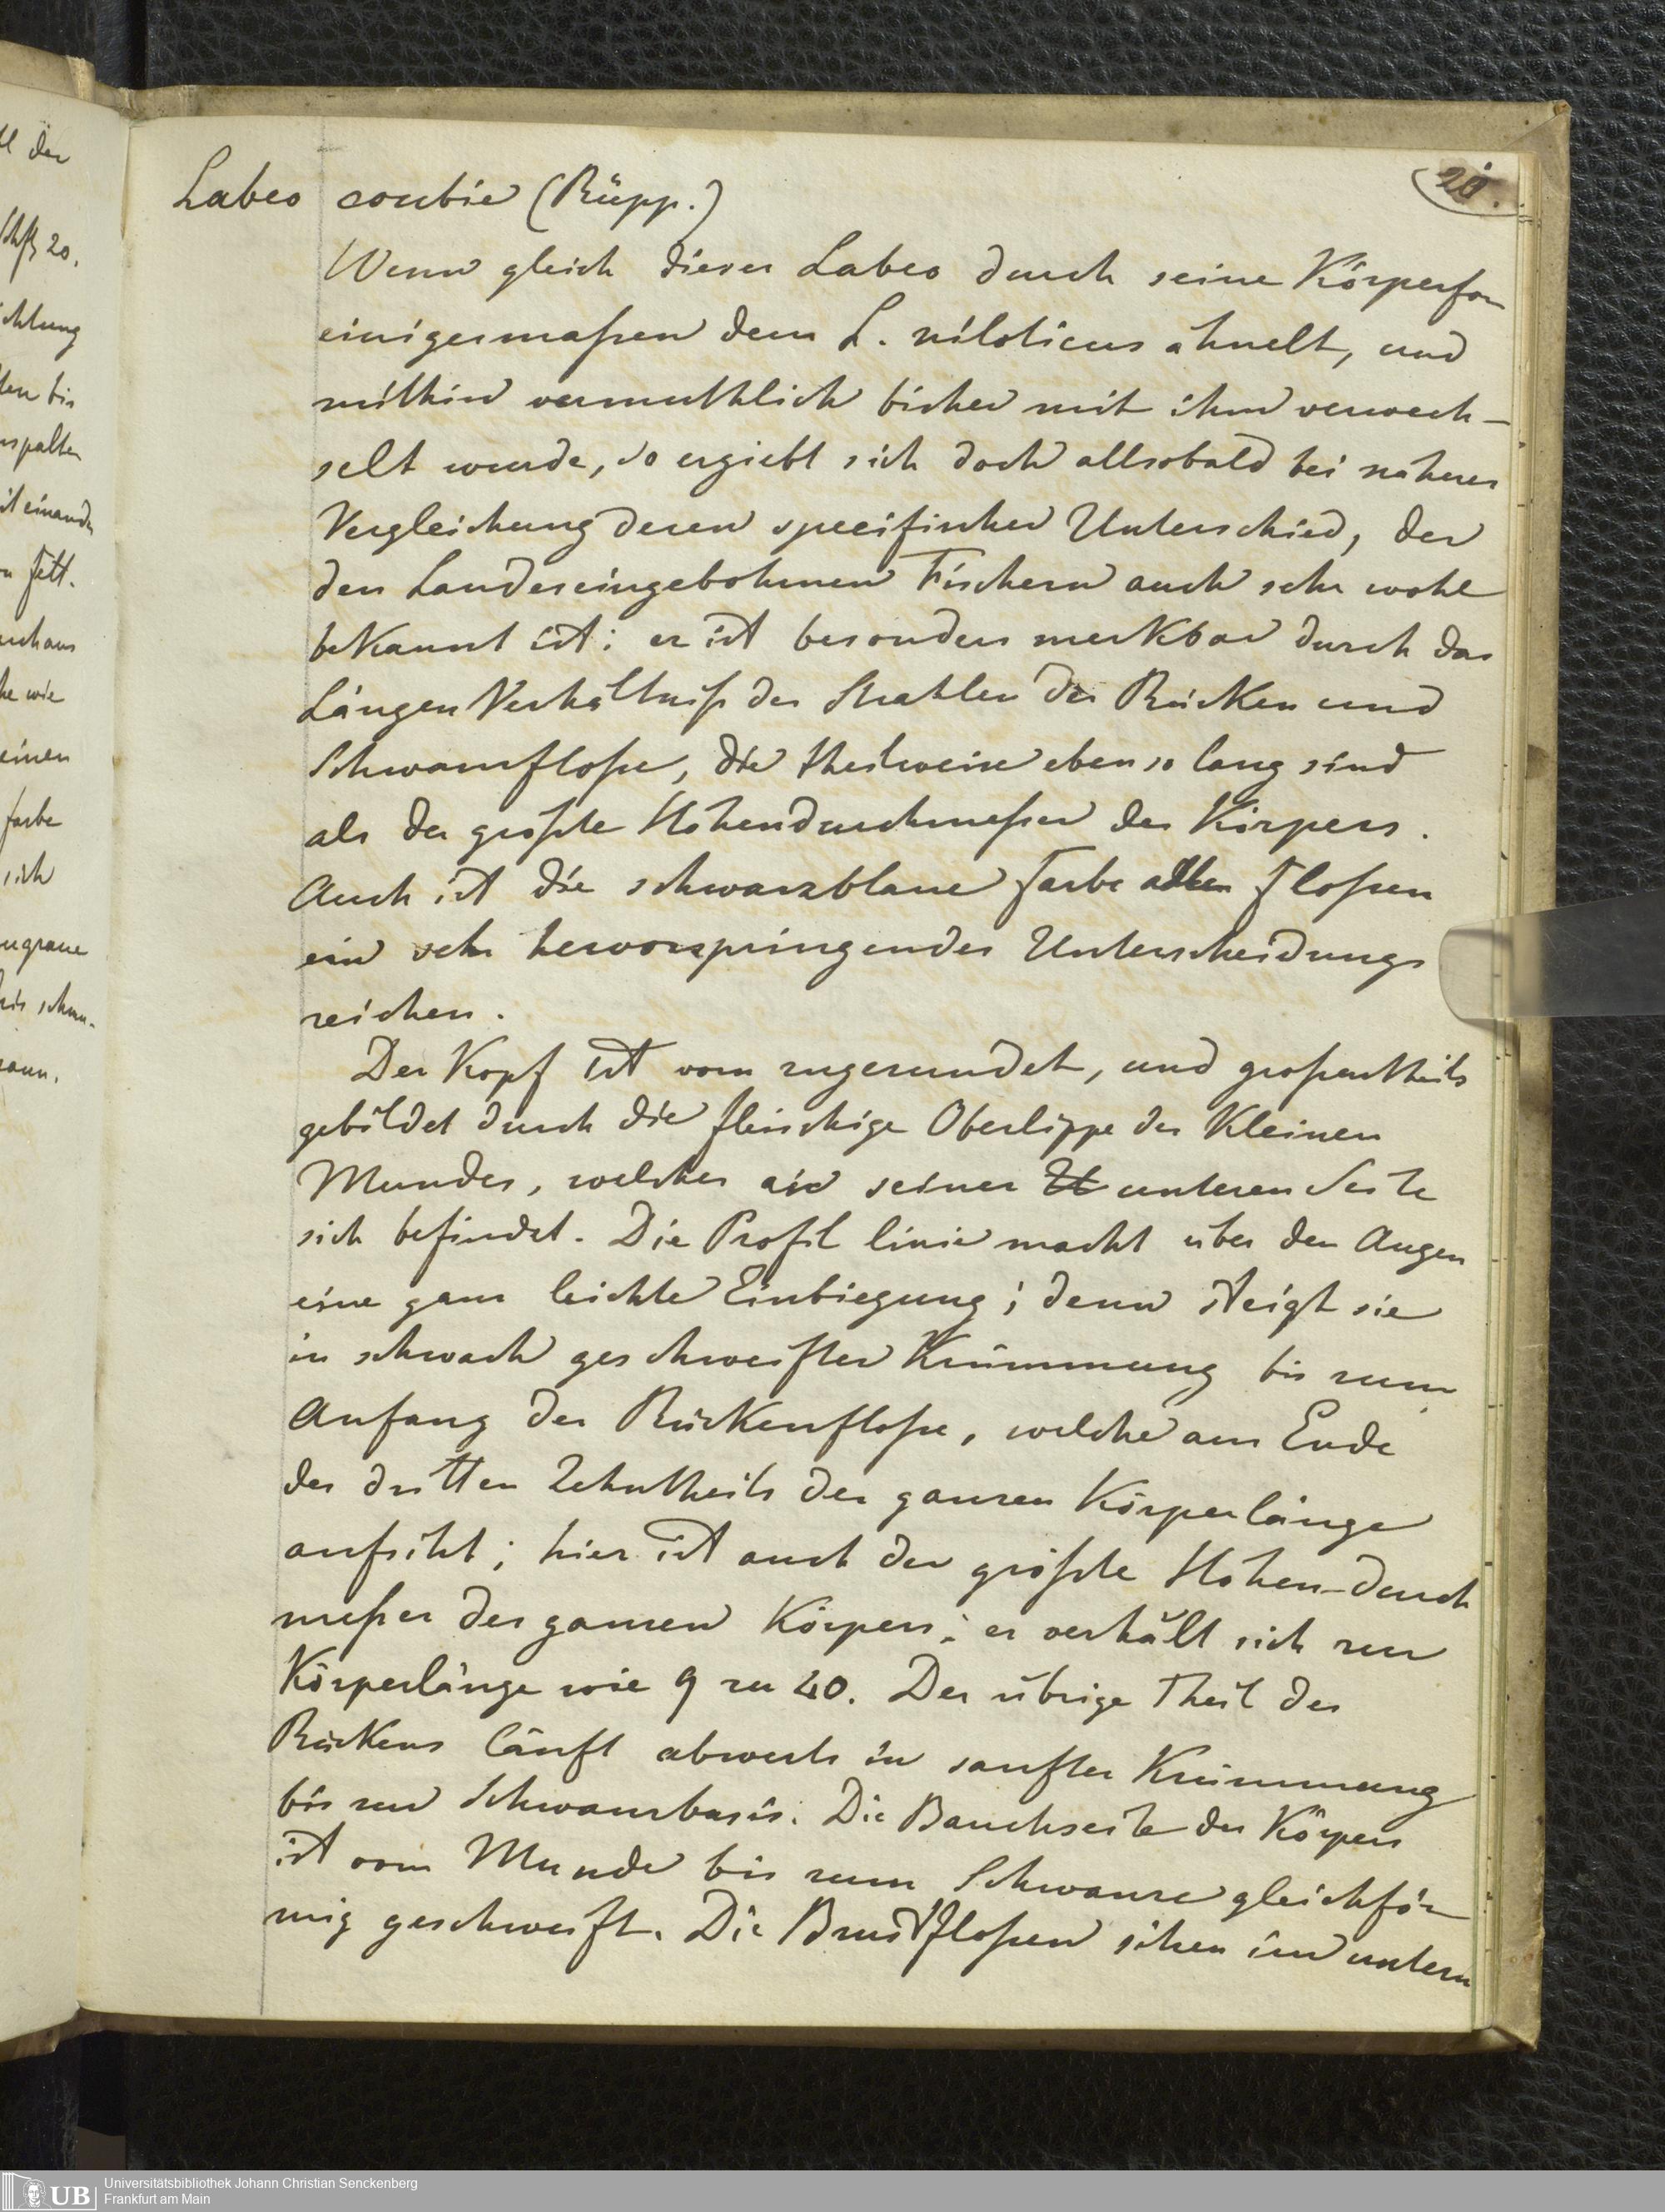 20.
Labeo coubie (Rüpp.)
Wenn gleich dieser Labeo durch seine Körperfor
einigermaßen dem L. niloticus ähnelt, und
mithin vermuthlich bisher mit ihm verwech-
selt wurde, so ergiebt sich doch allsobald bei näherer
Vergleichung deren specifischer Unterschied, der
den Landeseingebohrnen Fischern auch sehr wohl
bekannt ist: er ist besonders merkbar durch das
Längen Verhältniß der Strahlen der Rücken und
Schwanzfloße, die theilweise eben so lang sind
als der größte Höhendurchmeßer des Körpers.
Auch ist die schwarzblaue Farbe aller Floßen
ein sehr hervorspringendes Unterscheidungs
zeichen.
Der Kopf ist vorn zugerundet, und großentheils
gebildet durch die fleischige Oberlippe des Kleinen
Mundes, welcher an seiner U unteren Seite
sich befindet. Die Profil linie macht über den Augen
eine ganz leichte Einbiegung; dann steigt sie
in schwach geschweifter Krümmung bis zum
Anfang der Rückenfloße, welche am Ende
des dritten Zehntheils der ganzen Körperlänge
aufsitzt; hier ist auch der größte Höhen-durch
meßer des ganzen Körpers; er verhält sich zur
Körperlänge wie 9 zu 40. Der übrige Theil des
Rückens läuft abwerts in sanfter Krümmung
bis zur Schwanzbasis. Die Bauchseite des Körpers
ist vom Munde bis zum Schwanze gleichför
mig geschweift. Die Brustfloßen sitzen im untern
tl der
20.
chtung
ten bis
nspalten
it einander
n Fett.
rchaus
he wie
einen
farbe
sich
ugraue
Universitätsbibliothek Johann Christian Senckenberg
Frankfurt am Main
UB